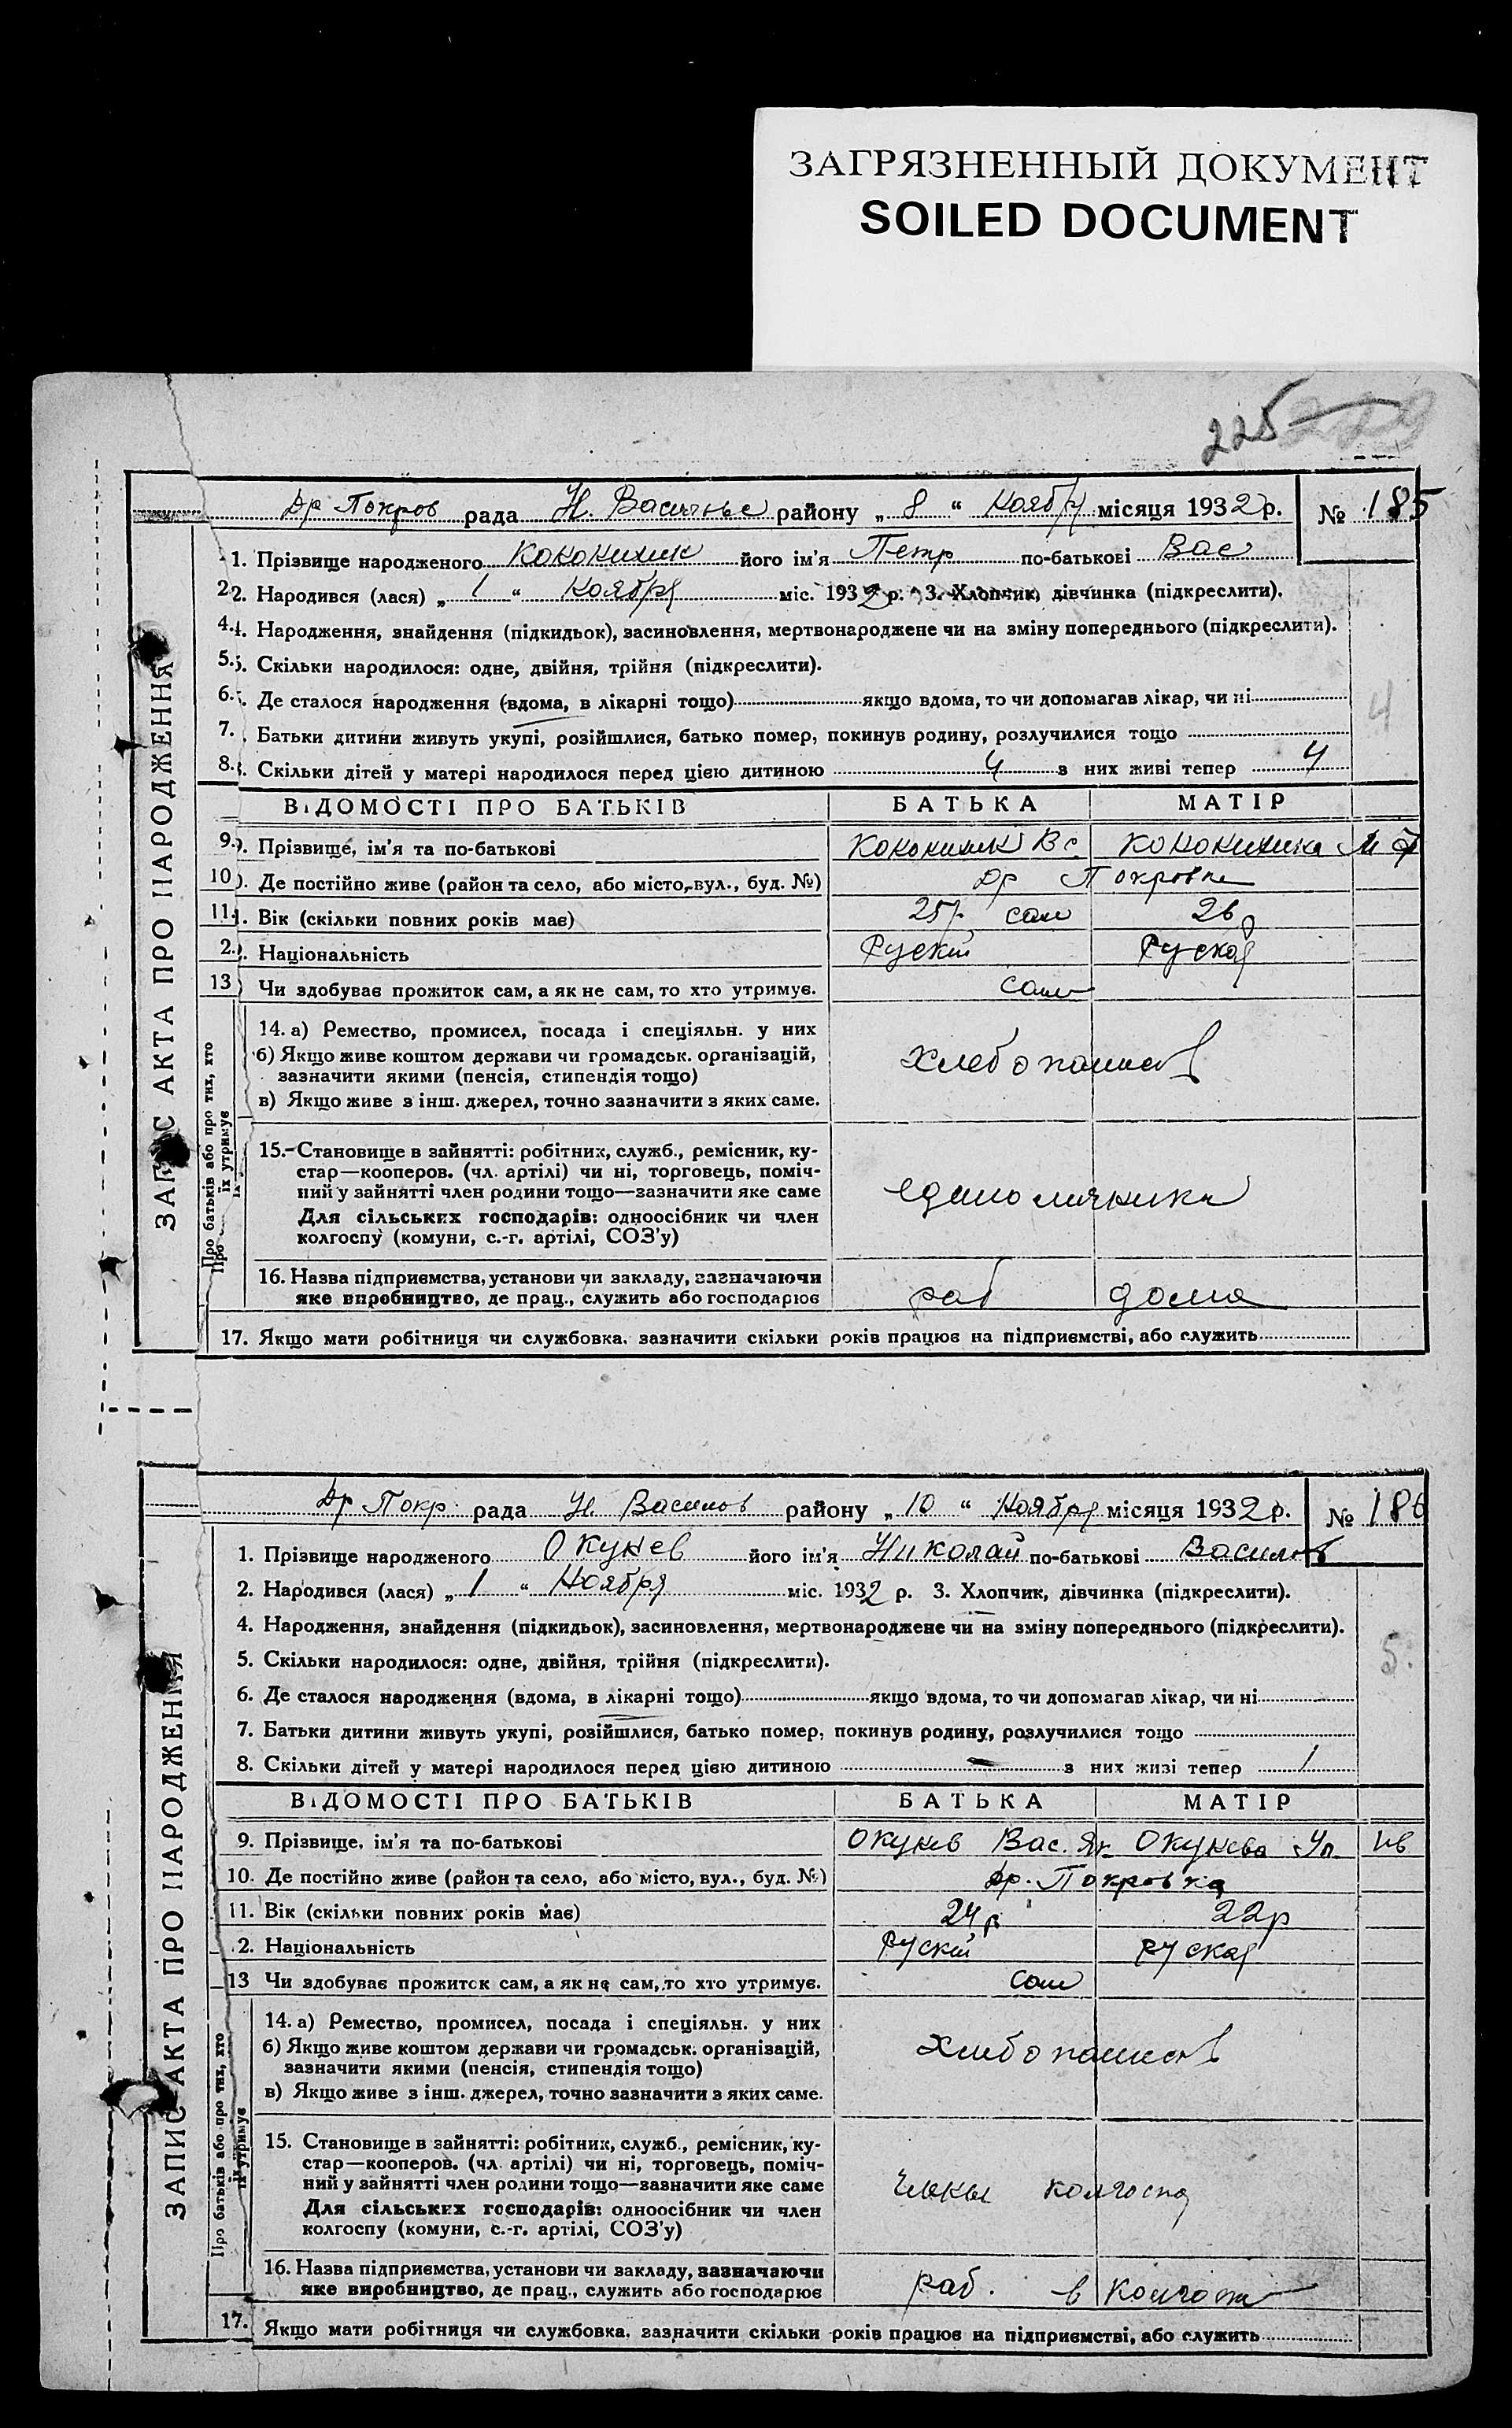 ЗАГРЯЗНЕННЫЙ ДОКУМЕНТ
SOILED DOCUMENT
225
ЗАПИС АКТА ПРО НАРОДЖЕННЯ
Др Покров рада Н. района „ 8 “ Ноября місяця 1932 р. № 185
1. Прізвище народженого його ім'я Петр по-батькові Вас
2. Народився (лася) „ 1 “ Ноября міс. 1932 р. 3. Хлопчик, дівчинка (підкреслити).
4. Народження, знайдення (підкидьок), засиновлення, мертвонароджене чи на зміну попереднього (підкреслити).
5. Скільки народилося: одне, двійня, трійня (підкреслити).
6. Де сталося народження (вдома, в лікарні тощо) якщо вдома, то чи допомагав лікар, чи ні
4
7. Батьки дитини живуть укупі, розійшлися, батько помер, покинув родину, розлучилися тощо
8. Скільки дітей у матері народилося перед цією дитиною 4 з них живі тепер 4
ВІДОМОСТІ ПРО БАТЬКІВ БАТЬКА МАТІР
9. Прізвище, ім'я та по-батькові
10. Де постійно живе (район та село, або місто, вул., буд. №) Др Покровка
11. Вік (скільки повних років має) 25 р. сам 26
12. Національність Руский Руская
13 Чи здобуває прожиток сам, а як не сам, то хто утримує. сам
Про батьків або про тих, хто їх утримує
14. а) Ремество, промисел, посада і спеціяльн. у них
б) Якщо живе коштом держави чи громадськ. організацій,
зазначити якими (пенсія, стипендія тощо)
в) Якщо живе з інш. джерел, точно зазначити з яких саме.
15. Становище в зайнятті: робітник, служб., ремісник, ку-
стар—кооперов. (чл. артілі) чи ні, торговець, поміч-
ний у зайнятті член родини тощо—зазначити яке саме
Для сільських господарів: одноосібник чи член
колгоспу (комуни, с.-г. артілі, СОЗ'у)
16. Назва підприємства, установи чи закладу, зазначаючи
яке виробництво, де прац., служить або господарює
раб дома
17. Якщо мати робітниця чи службовка, зазначити скільки років працює на підприємстві, або служить
ЗАПИС АКТА ПРО НАРОДЖЕННЯ
Др Покр. рада Н. Василов району „ 10 “ Ноября місяця 1932 р. № 186
1. Прізвище народженого Окунев його ім'я Николай по-батькові Василов
2. Народився (лася) „ 1 “ Ноября міс. 1932 р. 3. Хлопчик, дівчинка (підкреслити).
4. Народження, знайдення (підкидьок), засиновлення, мертвонароджене чи на зміну попереднього (підкреслити).
5. Скільки народилося: одне, двійня, трійня (підкреслити).
5.
6. Де сталося народження (вдома, в лікарні тощо) якщо вдома, то чи допомагав лікар, чи ні
7. Батьки дитини живуть укупі, розійшлися, батько помер, покинув родину, розлучилися тощо
8. Скільки дітей у матері народилося перед цією дитиною – з них живі тепер 1
ВІДОМОСТІ ПРО БАТЬКІВ БАТЬКА МАТІР
9. Прізвище, ім'я та по-батькові Окунев Вас. Як Окунева Ул. Ив
10. Де постійно живе (район та село, або місто, вул., буд. №) др. Покровка
11. Вік (скільки повних років має) 24 р 22 р
12. Національність Руский Руская
13 Чи здобуває прожиток сам, а як не сам, то хто утримує. сам
Про батьків або про тих, хто їх утримує
14. а) Ремество, промисел, посада і спеціяльн. у них
б) Якщо живе коштом держави чи громадськ. організацій,
зазначити якими (пенсія, стипендія тощо)
в) Якщо живе з інш. джерел, точно зазначити з яких саме.
15. Становище в зайнятті: робітник, служб., ремісник, ку-
стар—кооперов. (чл. артілі) чи ні, торговець, поміч-
ний у зайнятті член родини тощо—зазначити яке саме
Для сільських господарів: одноосібник чи член
колгоспу (комуни, с.-г. артілі, СОЗ'у)
члены колгоспа
16. Назва підприємства, установи чи закладу, зазначаючи
яке виробництво, де прац., служить або господарює
раб. в
17. Якщо мати робітниця чи службовка, зазначити скільки років працює на підприємстві, або служить